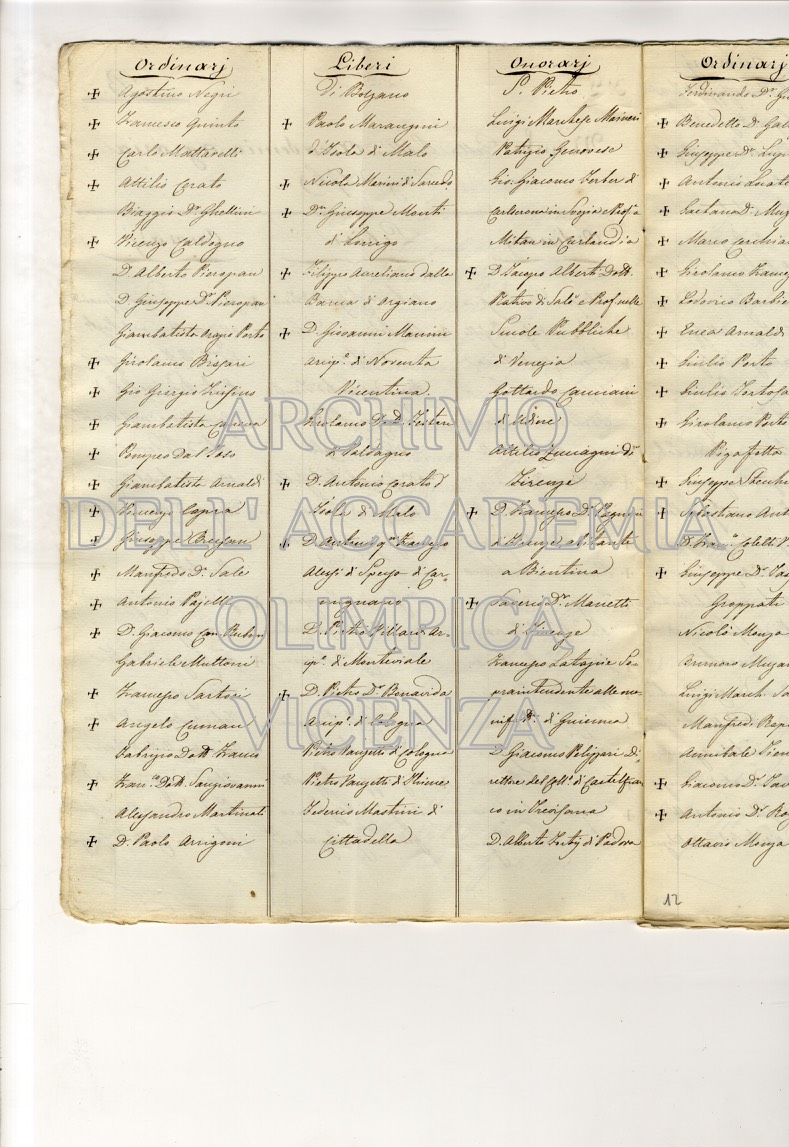 Ordinarj
✠ Agostino Negri
✠ Francesco Quinto
✠ Carlo Mattarelli
✠ Attilio Cerato
Biaggio Dr. Ghellini
✠ Vicenzo Caldogno
D. Alberto Pieropan
D. Giuseppe Dr. Pieropan
Giambatista Orazio Porto
✠ Girolamo Bissari
✠ Gio Giorgio Trissino
✠ Giambatista
✠ Pompeo Dal Toso
✠ Giambatista Arnaldi
✠ Vincenzo Capra
✠ Giuseppe
✠ Manfredo Dr. Sale
✠ Antonio Pajello
✠ D. Giacomo Can. Rubini
Gabriele Muttoni
✠ Francesco Sartori
✠ Angelo Cuman
Fabrizio Dott. Franco
✠ Fran.co Dott. Sangiovanni
Alessandro Martinati
✠ D. Paolo Arrigoni
Liberi
Di Bolzano
✠ Paolo Marangoni
d'Isola di Malo
✠ Nicola Marini di Sarcedo
✠ Dn. Giuseppe Monti
d'Lonigo
✠ Filippo Aureliano dalla
Barca d'Orgiano
✠ D. Giovanni Marini
Arcip.e di Noventa
Vicentina.
Girolamo Dr. D. Festari
d Valdagno
✠ D. Antonio Cerato d
Isola di Malo
✠ D. Antonio qm. Francesco
Alessi di Spezzo di Car-
mignano
D. Pietro Villardi Ar-
cip.e di Monteviale
✠ D. Pietro Dr. Benavida
Arcip.e di Cologna
Pietro Vanzetti di Cologna
Pietro Vanzetti di Thiene
Federico Mastini di
Cittadella
Onorarj
S. Pietro
Luigi Marchese Maineri
Patrizio Genovese
Gio: Giacomo Ferber di
Carlscrona in Svezia e Prof.e a
Mitau in Curlandia
✠ D. Jacopo Alberti Dott.
Nativo di Salò e Prof. nelle
Scuole Pubbliche
di Venezia
Gottardo Canciani
di Udine
Attilio Zuccagni Dr.
Firenze
✠ D. Francesco Dr. Pagnini
di Firenze abitante
a Bientina
✠ Saverio Dr. Manetti
di Firenze
Francesco Latapie So-
praintendente alle ma-
nif.re di Guienna
D. Giacomo Di-
rettore del Coll.o di Castelfran
co in Trevisana
D. Alberto Fortis di Padova
Ordinarj
Ferdinando Dr.
✠ Benedetto D.
✠ Giuseppe Dr.
✠ Antonio
✠ Gaetano D.
✠ Marco
✠ Girolamo
✠ Lodovico Barbie
✠ Enea Arnaldi
✠ Giulio Porto
✠ Giulio
✠ Girolamo Porto
Pigafetta
✠ Giuseppe
✠ Sebastiano
D. Fran.o
✠ Giuseppe Dr.
Groppati
Nicolò Monza
Brunoro Muzan
Luigi March.
Manfredi Rep
Annibale Tien
✠ Giacomo Dr.
✠ Antonio Dr.
Ottavio Monza
12
ARCHIVIO
DELL'ACCADEMIA
OLIMPICA
VICENZA